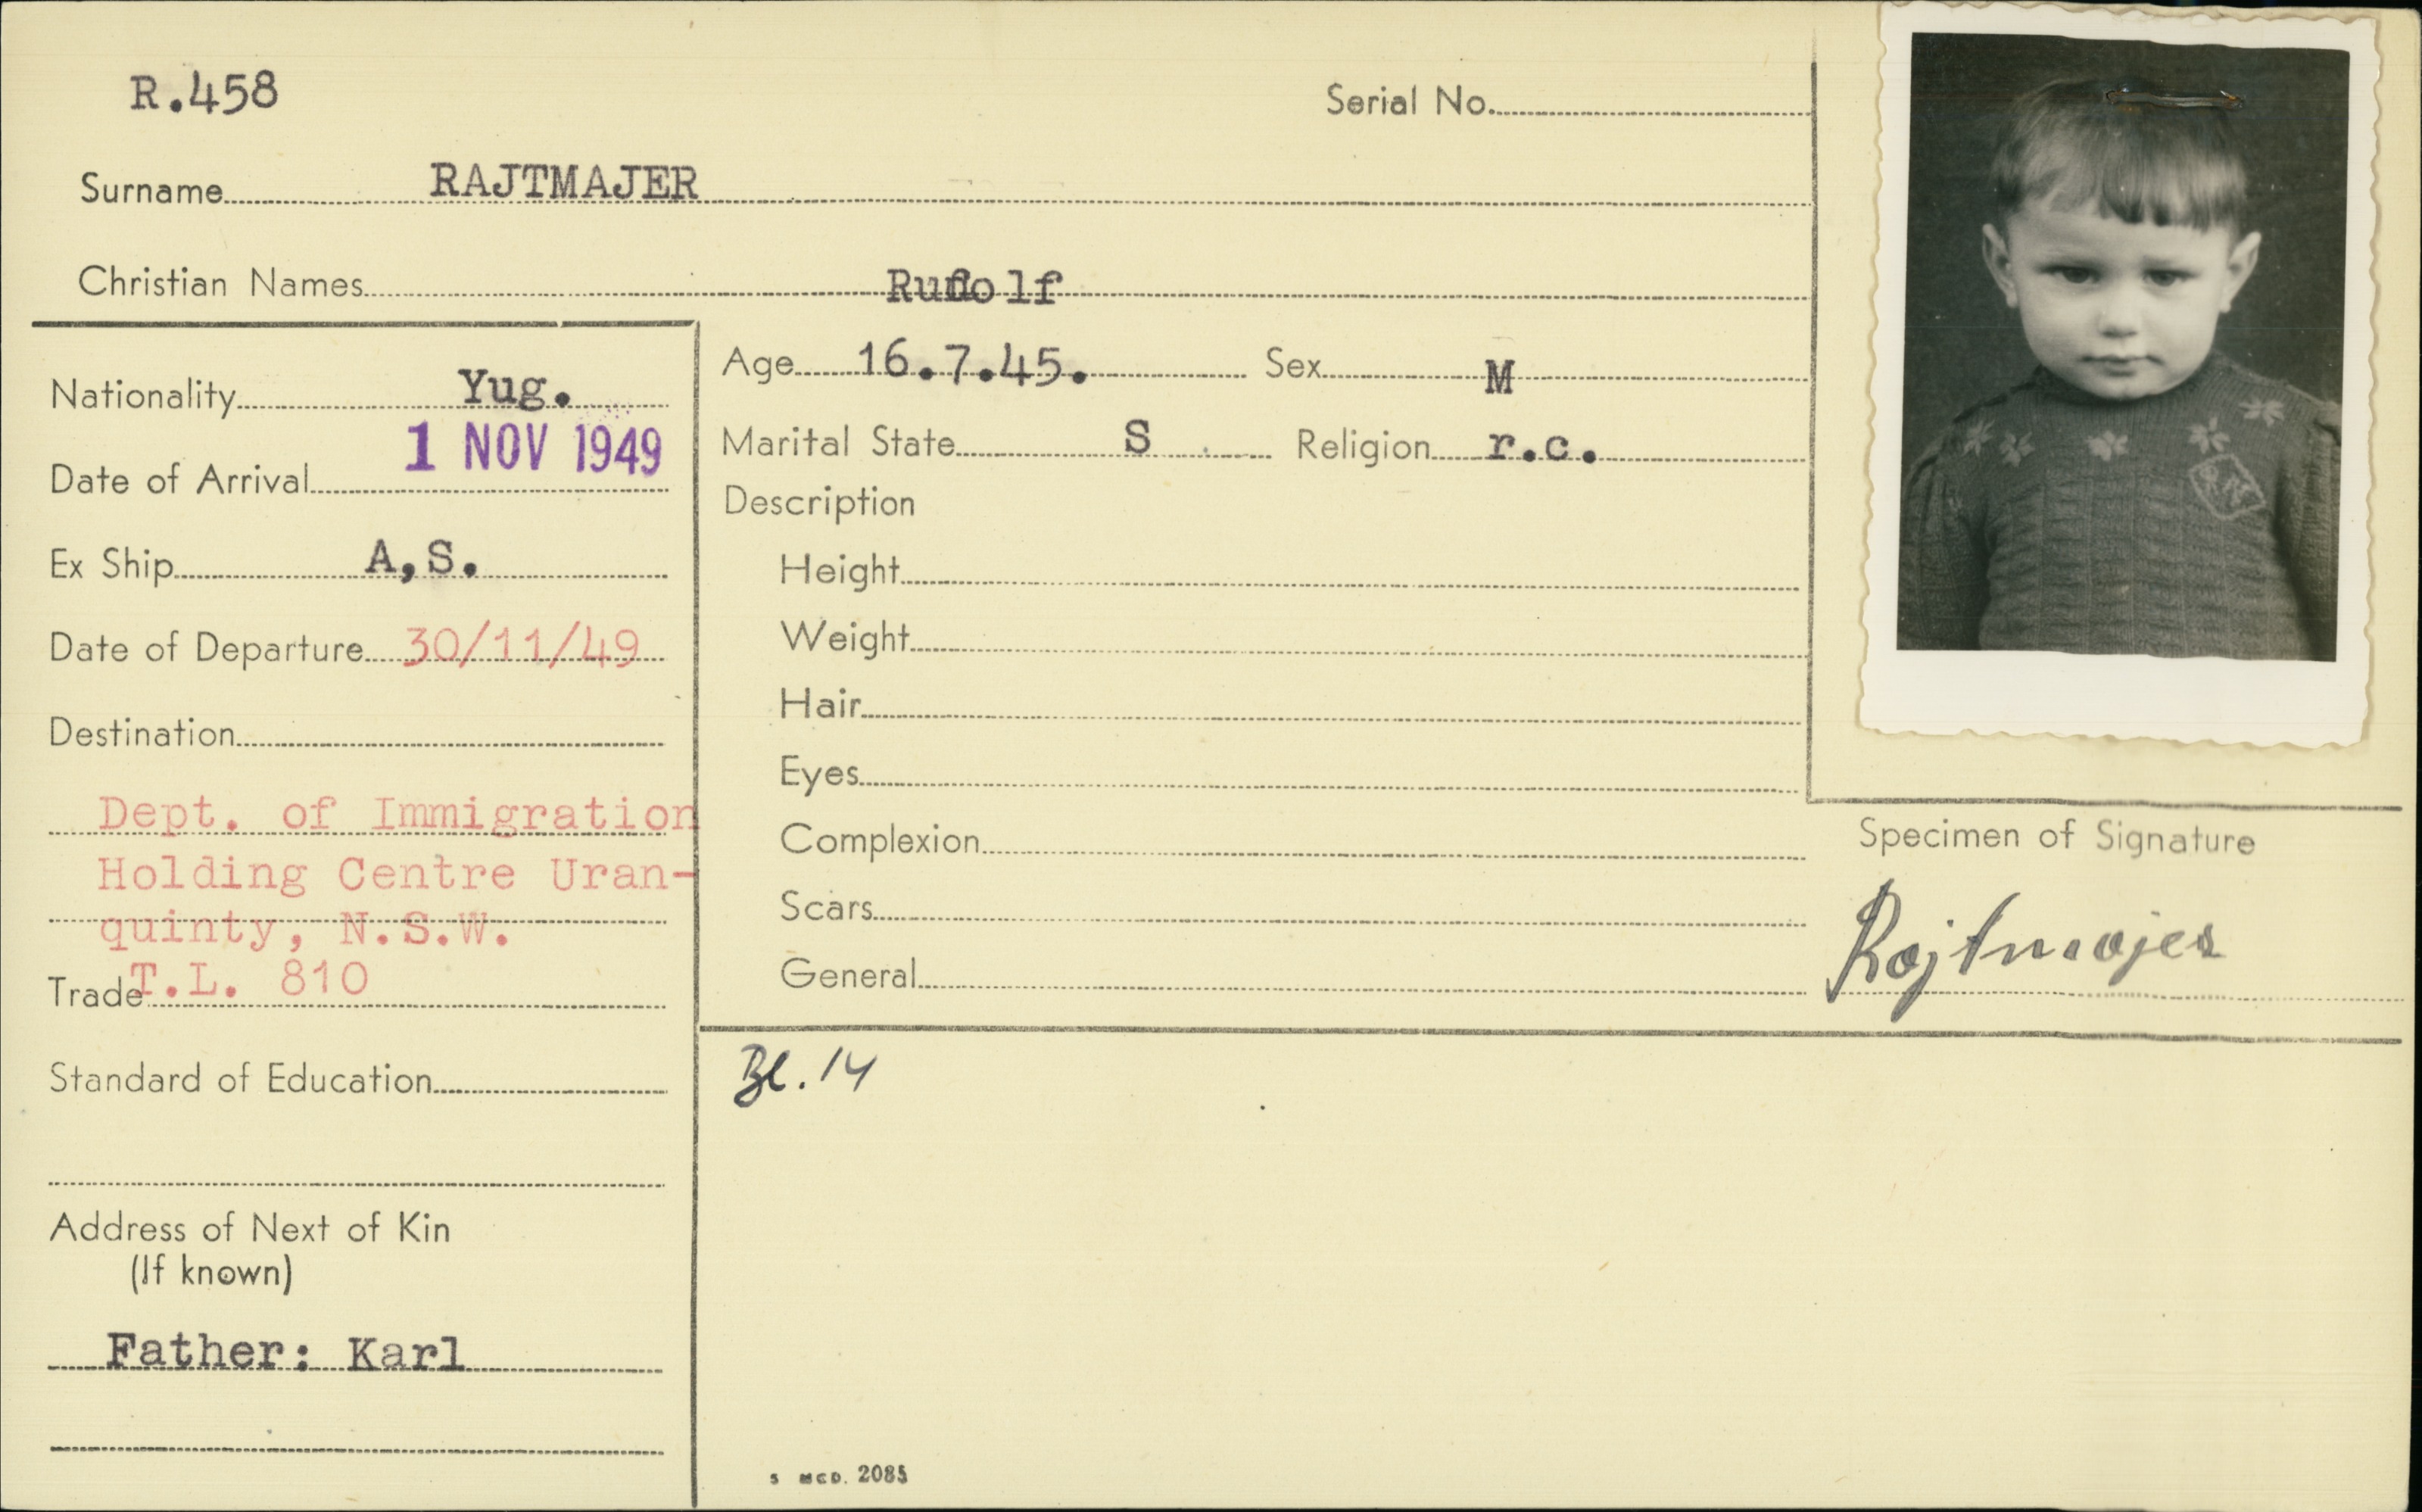 R.458
Serial No.
Surname RAJTMAJER
Christian Names Rudolf
Nationality Yug.
Date of Arrival 1 NOV 1949
Ex Ship A,S.
Date of Departure 30/11/49
Destination
Dept. of Immigration
Holding Centre Uran-
quinty, N.S.W.
T.L. 810
Trade
Standard of Education
Address of Next of Kin
(If known)
Father: Karl
Age 16.7.45. Sex M
Marital State S Religion r.c.
Description
Height
Weight
Hair
Eyes
Complexion
Scars
General
Bl. 14
Specimen of Signature
Rajtmajer
2085